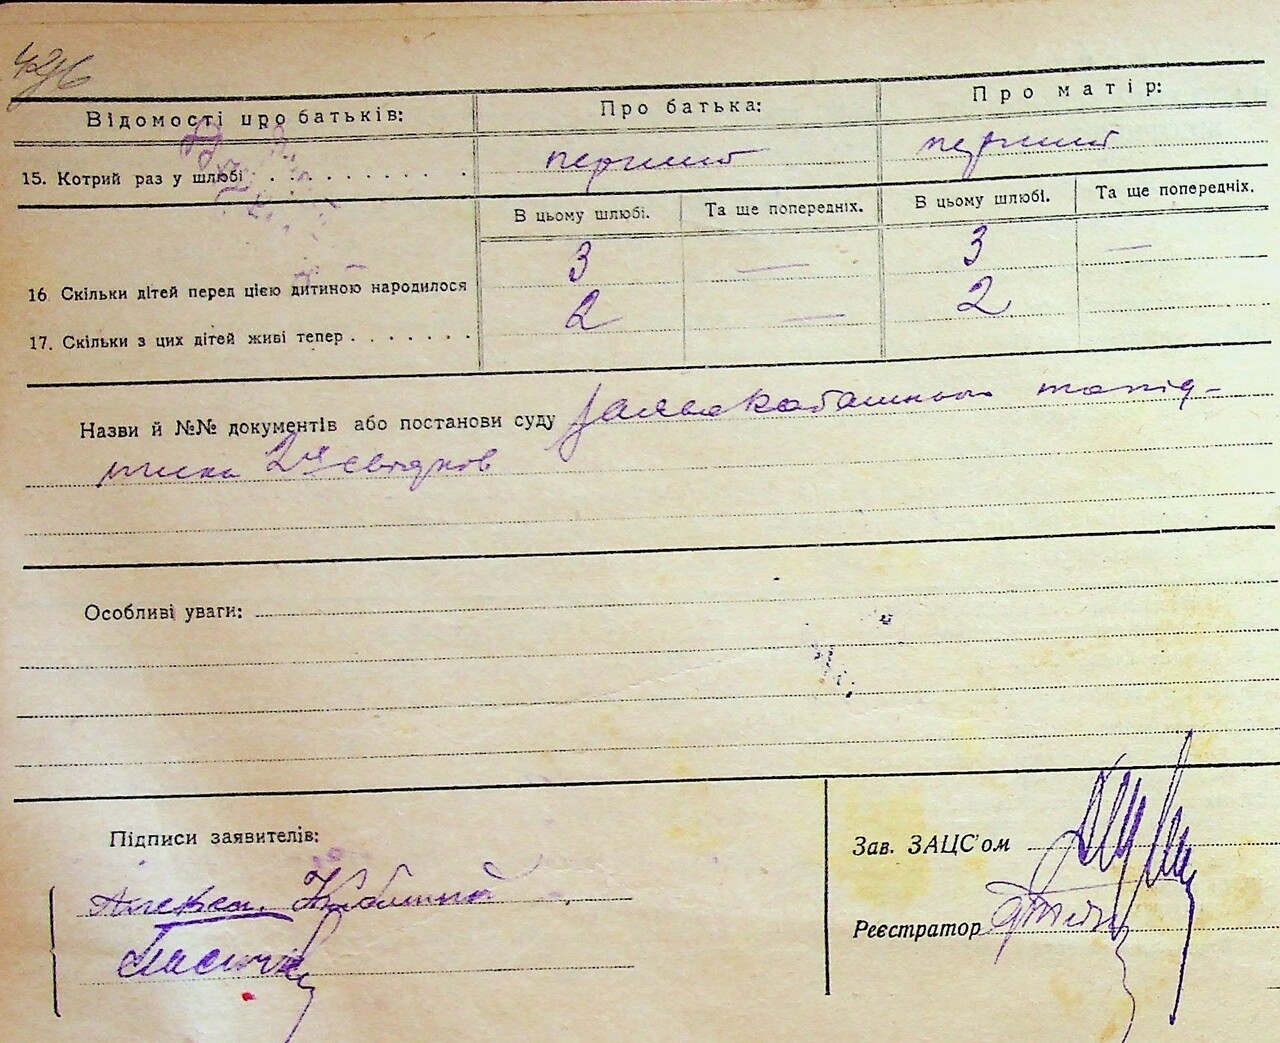 Відомості про батьків: Про батька: Про матір:
15. Котрий раз у шлюбі . . . . . . . . . . перший перший
В цьому шлюбі. Та ще попередніх. В цьому шлюбі. Та ще попередніх.
16 Скільки дітей перед цією дитиною народилося 3 — 3 —
17. Скільки з цих дітей живі тепер . . . . . . . 2 — 2
Назви й №№ документів або постанови суду заява та під-
писка 2х свідков
Особливі уваги:
Підписи заявителів:
Зав. ЗАЦС'ом
Реєстратор